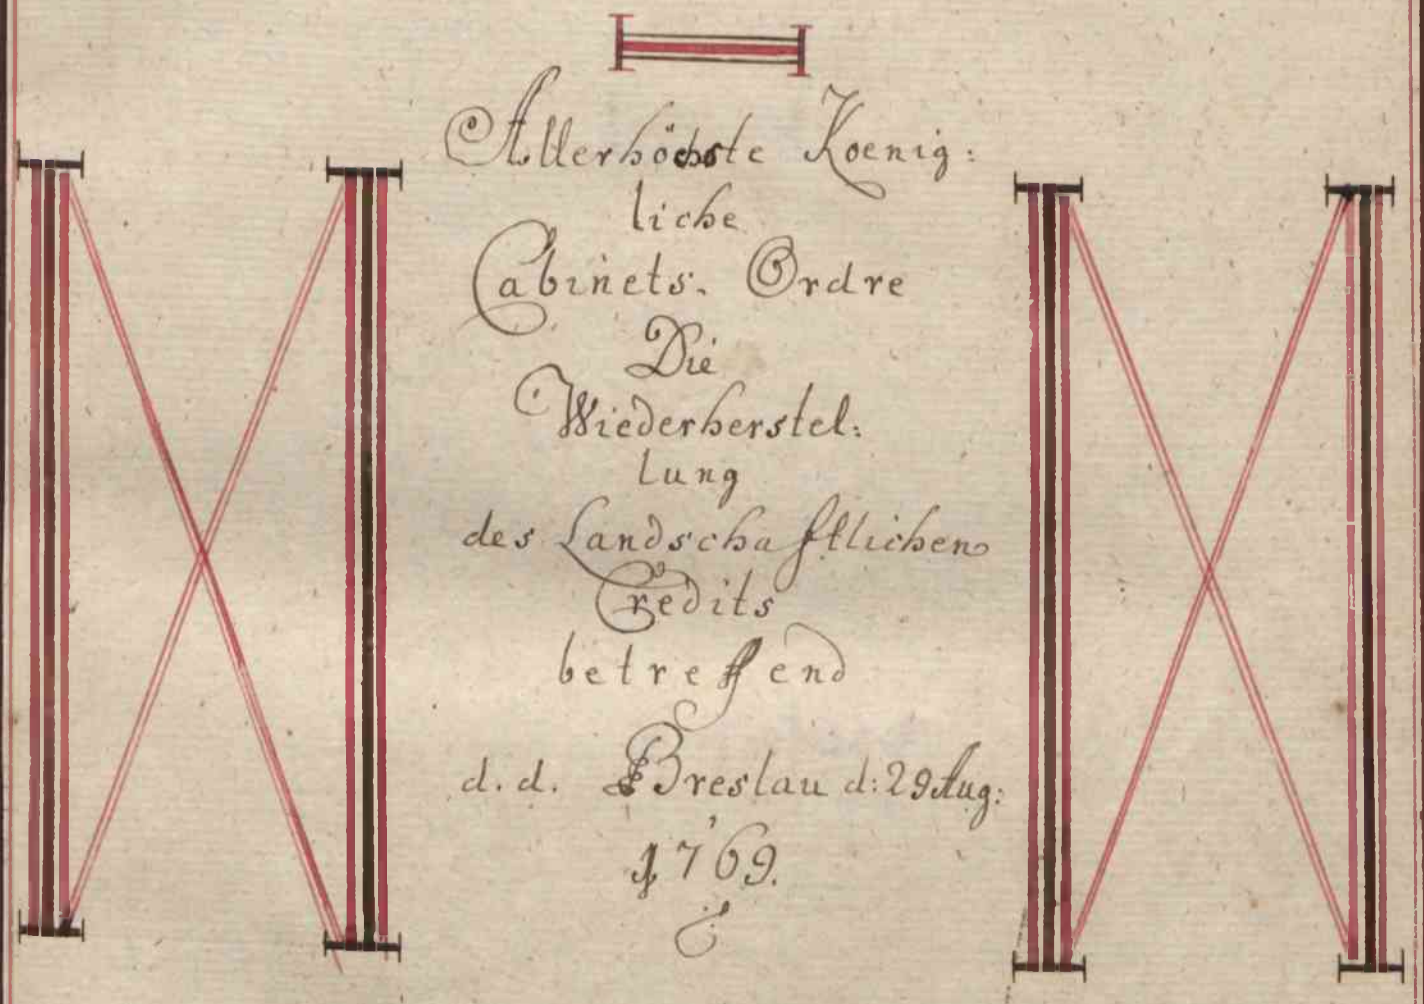 Allerhöchste Koenig:
liche
Cabinets. Ordre
Die
Wiederherstel:
lung
des Landschafftlichen
Credits
betreffend
d. d. Breslau d: 29 Aug:
1769.